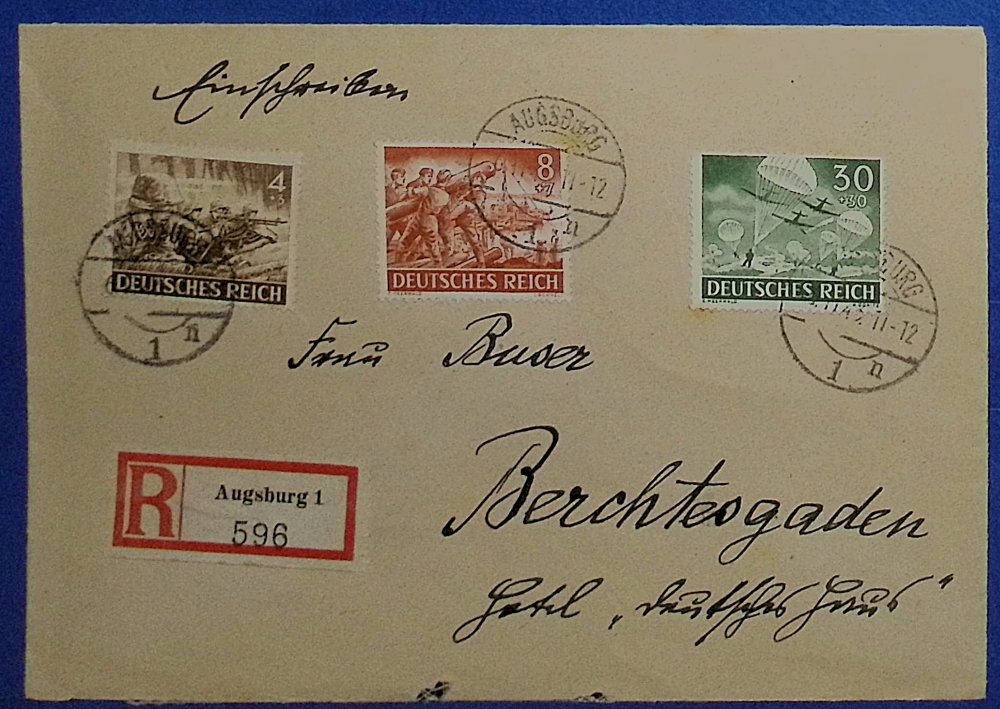 Einschreiben
4
+3
DEUTSCHES REICH
8
+7
DEUTSCHES REICH
30
+30
DEUTSCHES REICH
AUGSBURG
1 n
AUGSBURG
11-12
1 n
BURG
11-12
1 n
Frau Buser
R Augsburg 1
596
Berchtesgaden
Hotel „Deutsches Haus"